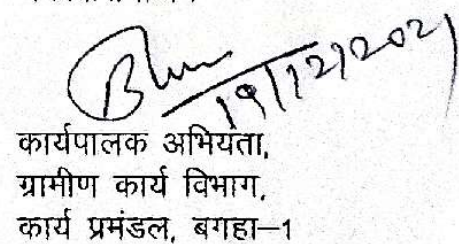 19/12/2021
कार्यपालक अभियंता,
ग्रामीण कार्य विभाग,
कार्य प्रमंडल, बगहा–1